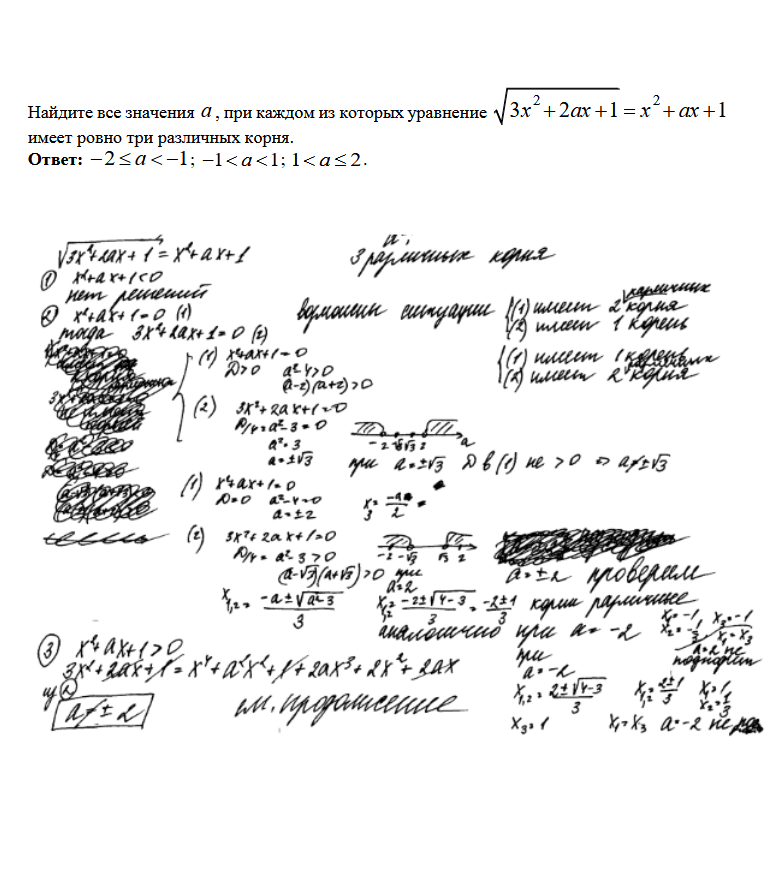 Найдите все значения a, при каждом из которых уравнение √(3x²+2ax+1) = x²+ax+1
имеет ровно три различных корня.
Ответ: −2≤a<−1; −1<a<1; 1<a≤2.
√(3x²+2ax+1) = x²+ax+1
3 различных корня
① x²+ax+1<0
нет решений
② x²+ax+1=0 (1)
тогда 3x²+2ax+1=0 (2)
возможны ситуации
{(1) имеет 2 различных корня
(2) имеет 1 корень
{(1) имеет 1 корень
(2) имеет 2 различных корня
(1) x²+ax+1=0
D>0 a²-4>0
(a-2)(a+2)>0
(2) 3x²+2ax+1=0
D/4=a²-3=0
a²=3
a=±√3
-2 -√3 √3 2 a
при a=±√3 D в (1) не >0 ⇒ a≠±√3
(1) x²+ax+1=0
D=0 a²-4=0
a=±2
(2) 3x²+2ax+1=0
D/4= a²-3>0
(a-√3)(a+√3)>0
-2 -√3 √3 2
a=±2 проверим
x1,2= (-a±√(a²-3))/3
при a=2
x1,2= (-2±√(4-3))/3 = (-2±1)/3 корни различные
аналогично при a=-2
x1=-1, x3=-1
x2=-1/3 x1=x3
a=2 не подходит
③ x²+ax+1>0
3x²+2ax+1=x⁴+a²x²+1+2ax³+2x²+2ax
из ②
a≠±2
см. продолжение
при a=-2
x1,2= (2±√(4-3))/3 x1,2= (2±1)/3 x1=1
x2=1/3
x3=1 x1=x3 a=-2 не